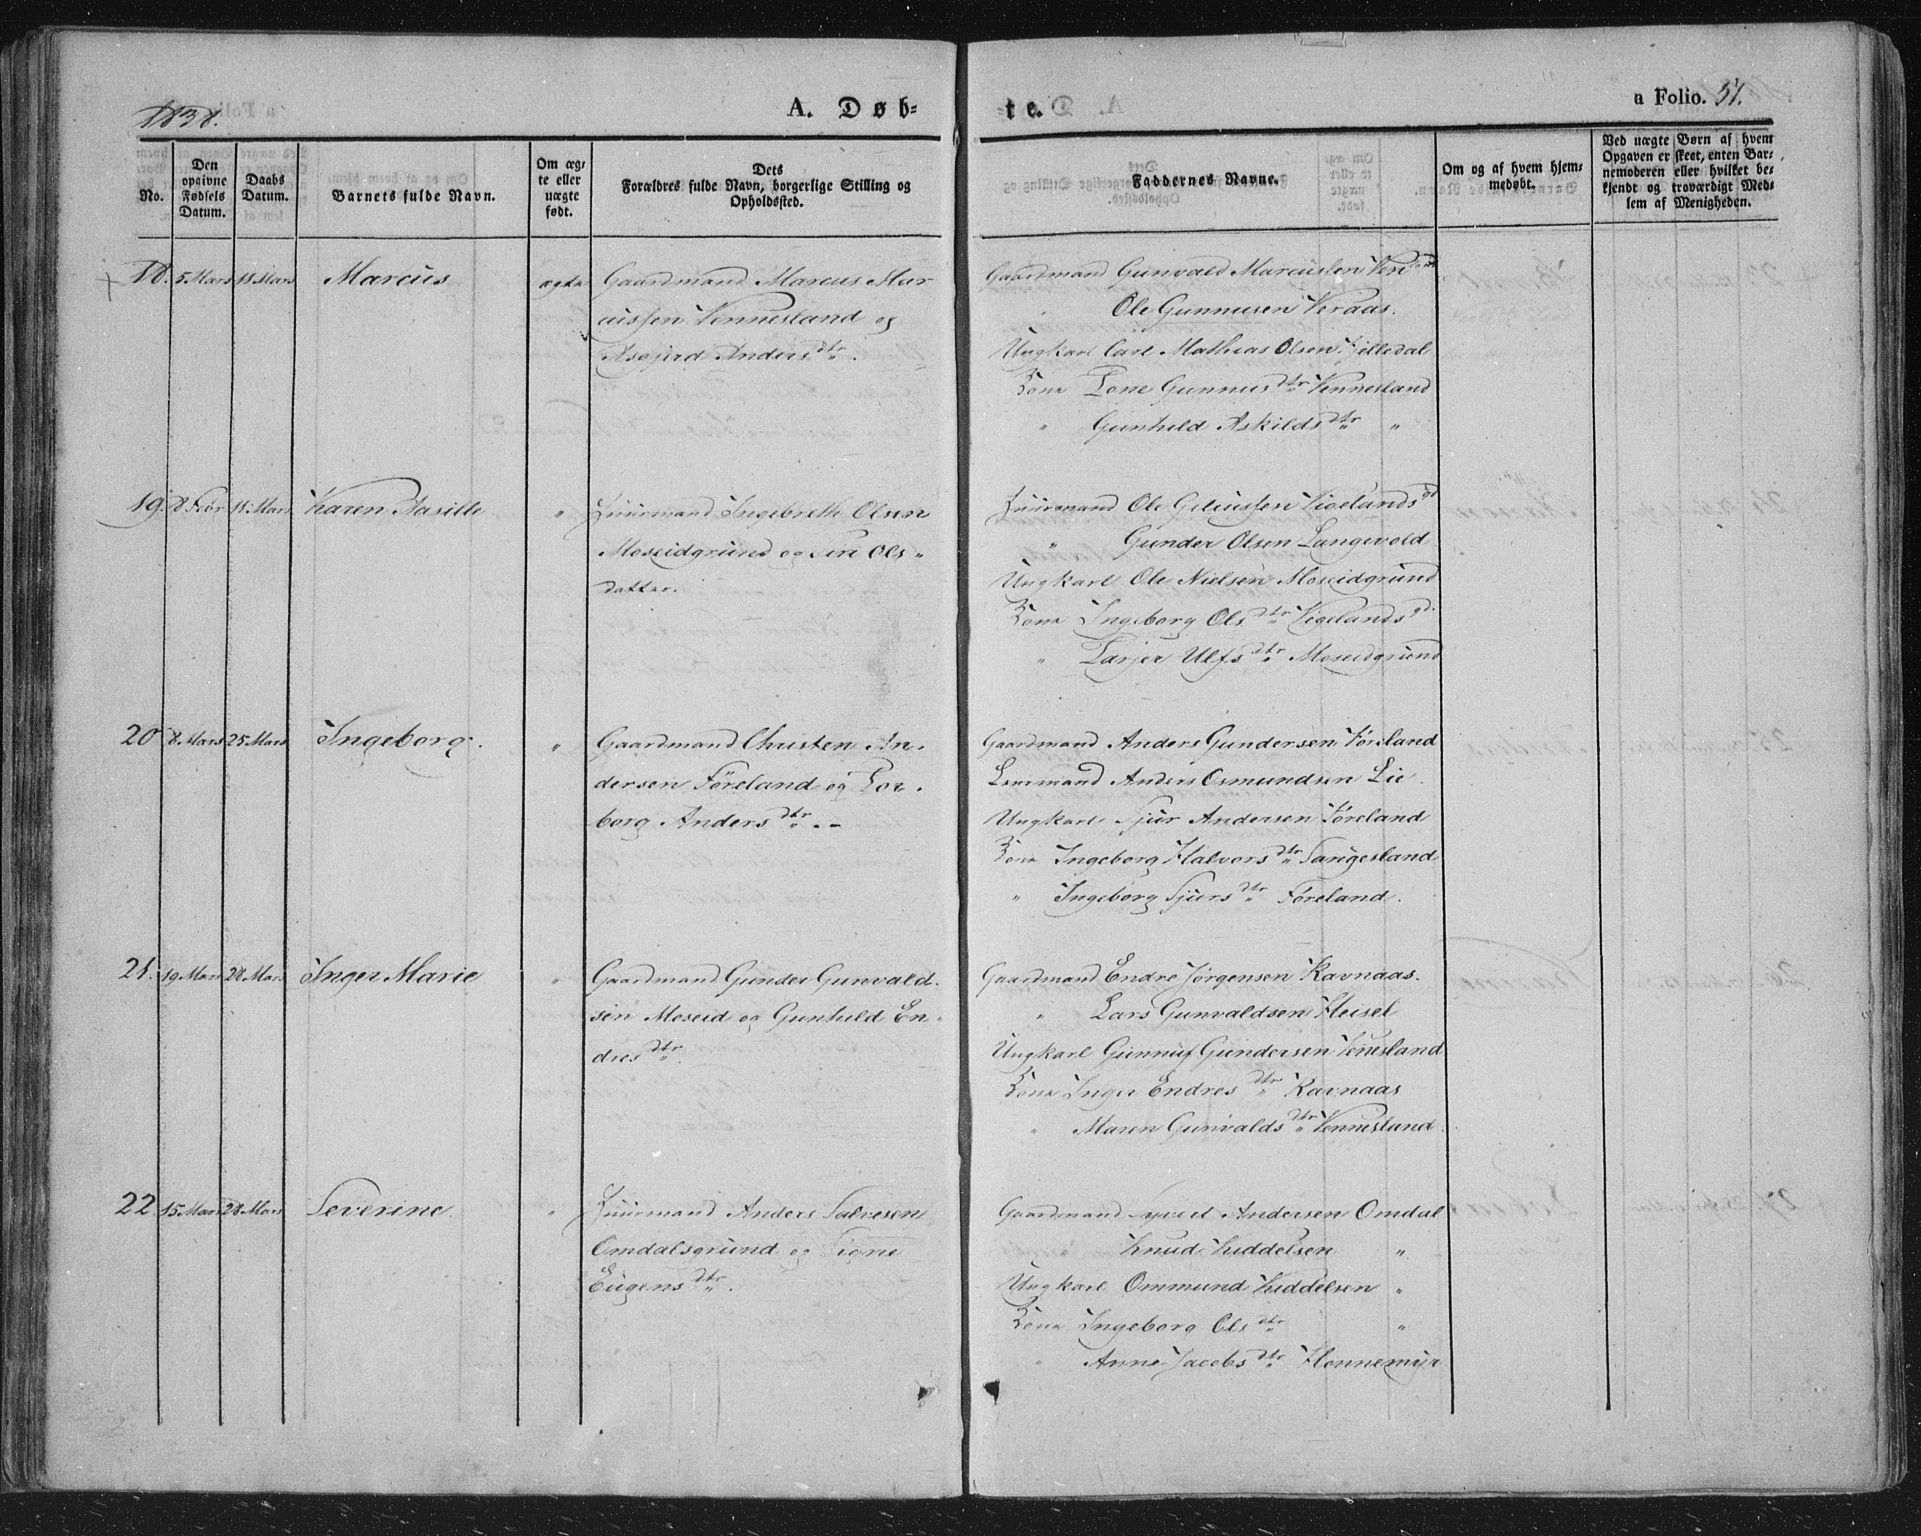 1838.
A. Døb-
te.
a Folio. 51.
No.
Den opgivne Fødsels Datum.
Daabs Datum.
Barnets fulde Navn.
Om æg-
te eller
uægte
født.
Dets
Forældres fulde Navn, borgerlige Stilling og
Opholdssted.
Faddernes Navne.
Om og af hvem hjem-
medøbt.
Ved uægte Børn af hvem
Opgaven er skeet, enten Bar-
nemoderen eller hvilket be-
kjendt og troværdigt Med-
lem af Menigheden.
18. 5 Mars 11 Mars Marcus ægte Gaardmand Marcus Mar-
cussen Vennesland og
Asgjerd Anders dtr.
Gaardmand Gunvald Marcussen Ven
Ole Gunnusen Veraas.
Ungkarl Carl Mathias Olsen
Kona Tone Gunnus dtr Vennesland
" Gunhild Askilds dtr "
19. 8 Febr 11 Mars Karen Tasille " Huusmand Ingebreth Olsen
Moseidgrund og Siri Ols-
datter.
Huusmand Ole Vigelands
" Gunder Olsen Langevold
Ungkarl Ole Nielsen Moseidgrund
Kona Ingeborg Ols dtr Vigelands
" Tarjer Ulfs dtr Moseidgrund
20 8 Mars 25 Mars Ingeborg. " Gaardmand Christen An-
dersen Føreland og Tor-
borg Anders dtr. -
Gaardmand Anders Gundersen Føreland
Anders Osmundsen Lie.
Ungkarl Sjur Andersen Føreland
Kona Ingeborg Halvors dtr Saugesland
" Ingeborg Sjurs dtr Føreland.
21. 19 Mars 28 Mars Inger Marie " Gaardmand Gunder Gunvald-
sen Moseid og Gunhild En-
dres dtr.
Gaardmand Endre Jørgensen Ravnaas.
" Lars Gunvaldsen Heisel
Ungkarl Gunnuf Gundersen Venesland
Kona Inger Endres dtr Ravnaas
" Maren Gunvalds dtr Vennesland
22. 15 Mars 28 Mars Severine. " Huusmand Anders Salvesen
Omdalsgrund og Signe
Eugens dtr.
Gaardmand Syvert Andersen Omdal
Knud Kiddelsen "
Ungkarl Ommund Kiddelsen "
Kona Ingeborg Ols dtr "
" Anne Jacobs dtr Honnemyr